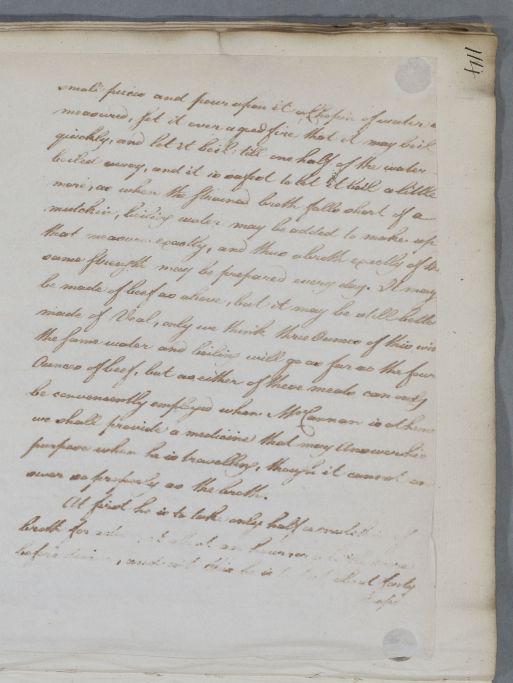 114
small pieces and pour upon it a Chopin of water
measured, set it over a good fire that it may boil
quickly, and let it boil till one half of the water
boiled away, and it is safest to let it boil a little
more, as when the strained broth falls short of a
mutchkin, boiling water may be added to make up
that measure exactly, and thus a broth exactly of the
same strength may be prepared every day. It may
be made of beef as above, but it may be still better
made of Veal, only we think three Ounces of this with
the same water and boiling will go as far as the four
Ounces of beef, but as either of these meats can only
be conveniently employed when Mr is at home
we shall provide a medicine that may answer the
purpose when he is travelling, though it cannot an
swer so properly as the broth.
At first he is to take only half a
broth for about an hour
before dinner, and with this he is forty